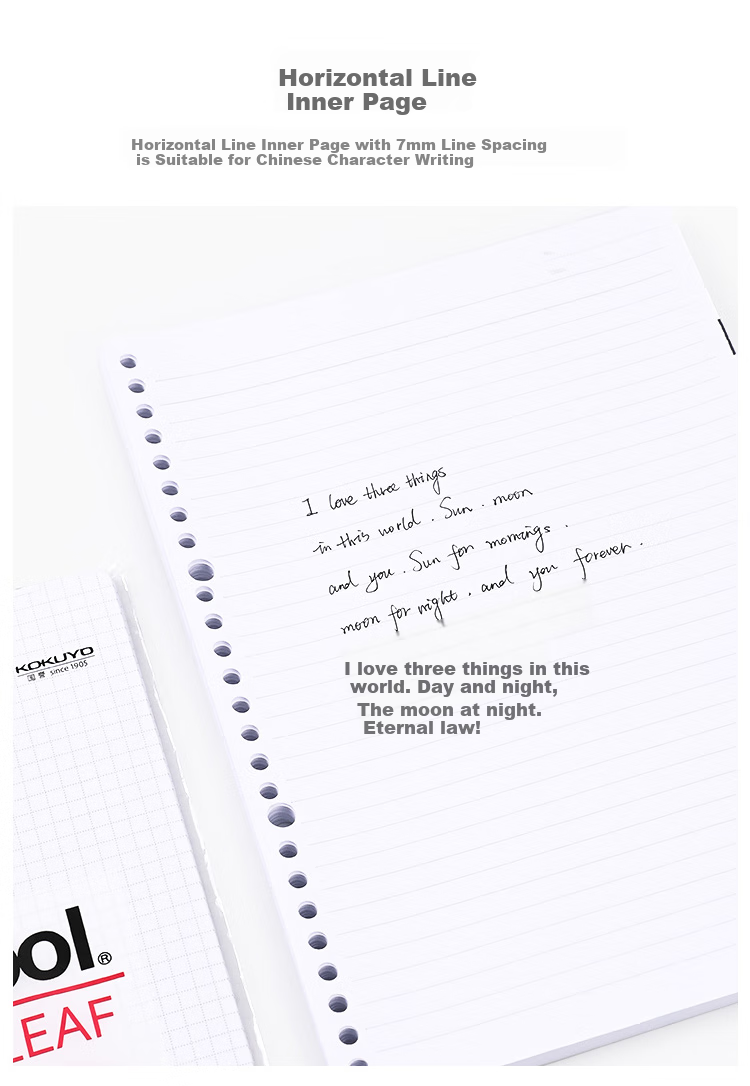 Horizontal Line
Inner Page
Horizontal Line Inner Page with 7mm Line Spacing
is Suitable for Chinese Character Writing
I love three things
in this world. Sun. moon
and you. Sun for mornings.
moon for night. and you forever.
I love three things in this
world. Day and night,
The moon at night.
Eternal law!
KOKUYO
国誉 since 1905
ool®
LEAF